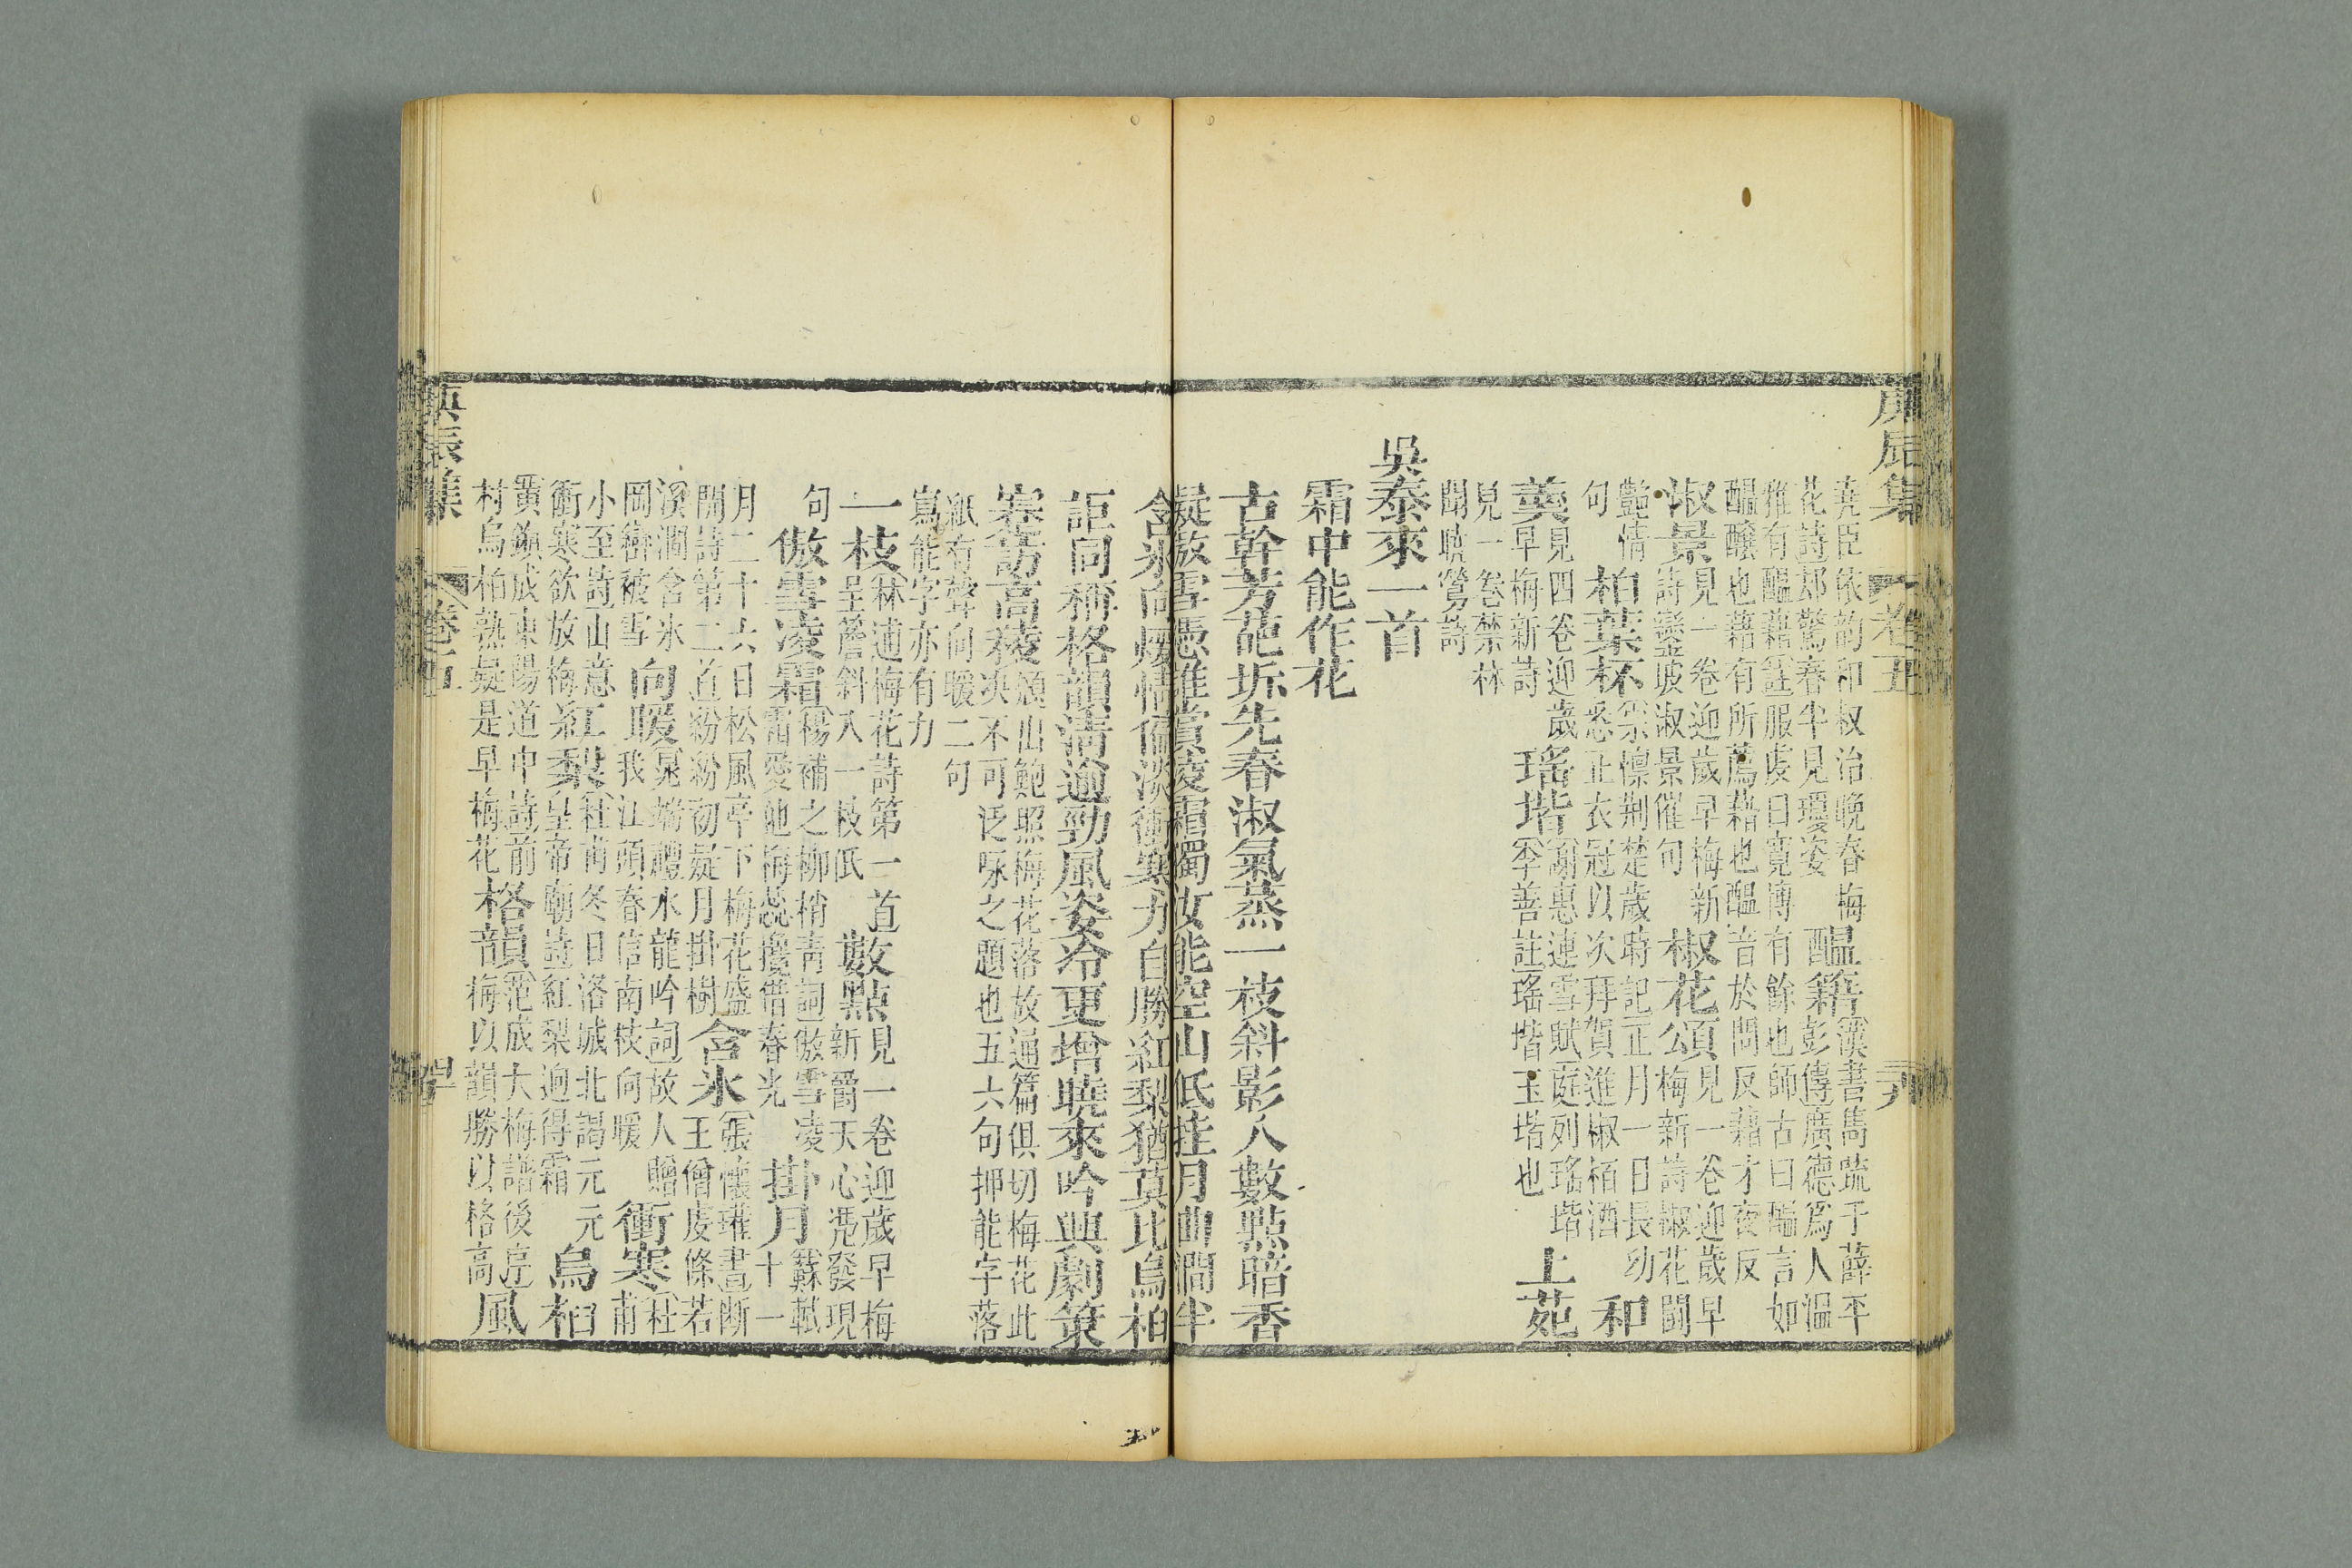 庚辰集
卷五
堯臣依韵和叔治晚春梅
花詩却驚春半見瓊姿
醖籍
漢書雋疏于薛平
彭傳廣德爲人溫
雅有醖藉註服虔曰寬博有餘也師古曰醖言如
醖釀也藉有所薦藉也醖音於問反藉才夜反
淑景
見一卷迎歲早梅新
詩鑾坡淑景催句
椒花頌
見一卷迎歲早
梅新詩椒花闘
豔情
句
柏葉杯
宗懍荆楚歲時記正月一日長幼
悉正衣冠以次拜賀進椒栢酒
和
羹
見四卷迎歲
早梅新詩
瑤堦
謝惠連雪賦庭列瑤堦
李善註瑤堦玉堦也
上苑
見一卷禁林
聞曉鶯詩
吳泰來一首
霜中能作花
古幹芳葩坼先春淑氣蒸一枝斜影人數點暗香
凝傲雪憑誰賞凌霜獨汝能空山低挂月曲澗半
含冰向暖情偏淡衝寒力自勝紅梨猶莫比烏柏
詎同稱格韻淸逾勁風姿冷更增曉來吟興劇策
蹇訪高稜
題出鮑照梅花落故通篇俱切梅花此
決不可泛咏之題也五六句押能字落
紙有聲向暖二句
寫能字亦有力
一枝
林逋梅花詩第一首
呈簷斜入一枝低
數點
見一卷迎歲早梅
新爵天心凴發現
句
傲雪凌霜
楊補之柳梢靑詞傲雪凌
霜愛他梅蕊攙借春光
掛月
蘇軾
十一
月二十六日松風亭下梅花盛
開詩第二首紛紛初疑月掛樹
含氷
張懷瓘書斷
王僧虔條若
溪澗含氷
岡巒被雪
向暖
晁端禮水龍吟詞故人贈
我江頭春信南枝向暖
衝寒
杜甫
小至詩山意
衝寒欲放梅
紅梨
杜甫冬日洛城北謁元元
皇帝廟詩紅梨逈得霜
烏桕
黃鎮成東陽道中詩前
村烏柏熟疑是早梅花
格韻
范成大梅譜後序
梅以韻勝以格高
風
庚辰集
卷五